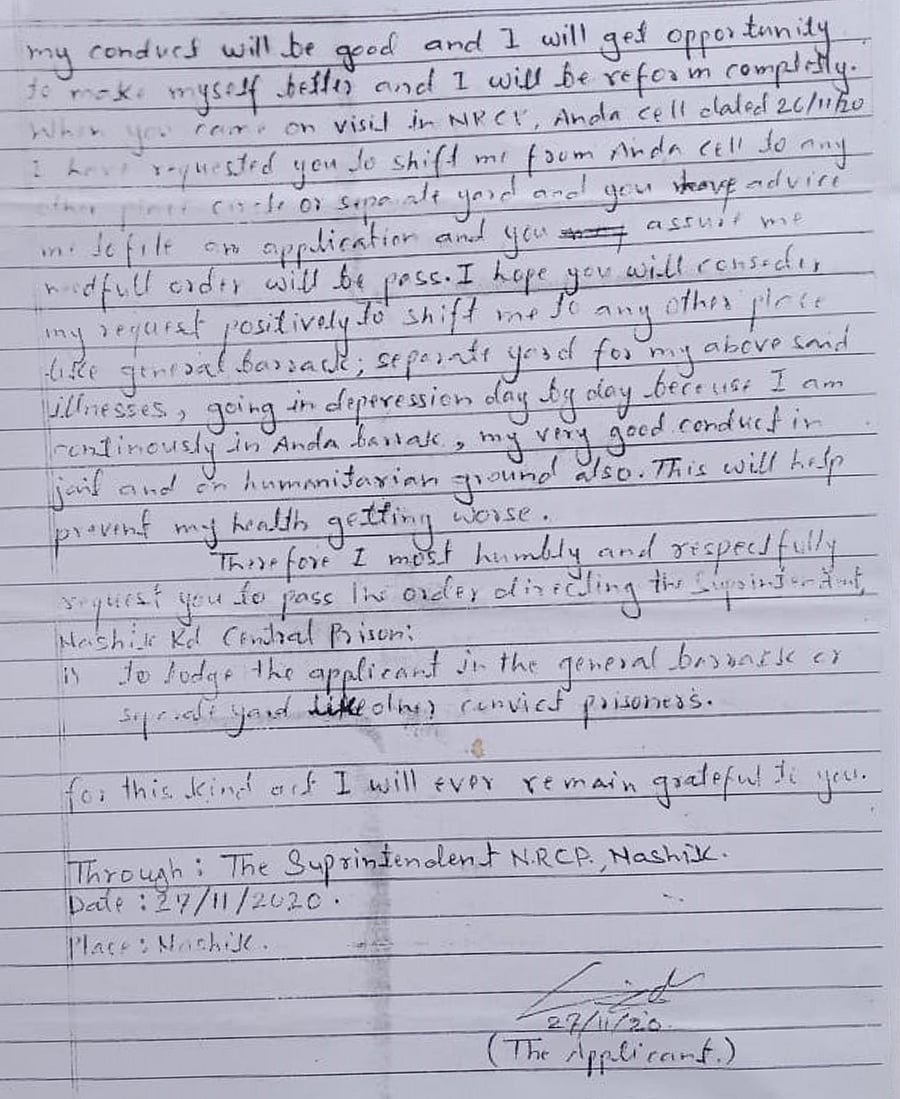 my conduct will be good and I will get opportunity
to make myself better and I will be reform completly.
When you came on visit in NRCP, Anda cell dated 26/11/20
I have requested you to shift me from Anda cell to any
other place circle or separate yard and you have advice
me to file an application and you assure me
needfull order will be pass. I hope you will consider
my request positively to shift me to any other place
like general barrack, separate yard for my above said
illnesses, going in deperession day by day because I am
continously in Anda barrak, my very good conduct in
jail and on humanitarian ground also. This will help
prevent my health getting worse.
Therefore I most humbly and respectfully
request you to pass the order directing the Suprintendent,
Nashik Rd Central Prison:
i) to lodge the applicant in the general barrack or
seprate yard like other convict prisoners.
for this kind act I will ever remain grateful to you.
Through: The Suprintendent N.R.C.P., Nashik.
Date: 27/11/2020.
Place: Nashik.
27/11/20.
(The Applicant.)